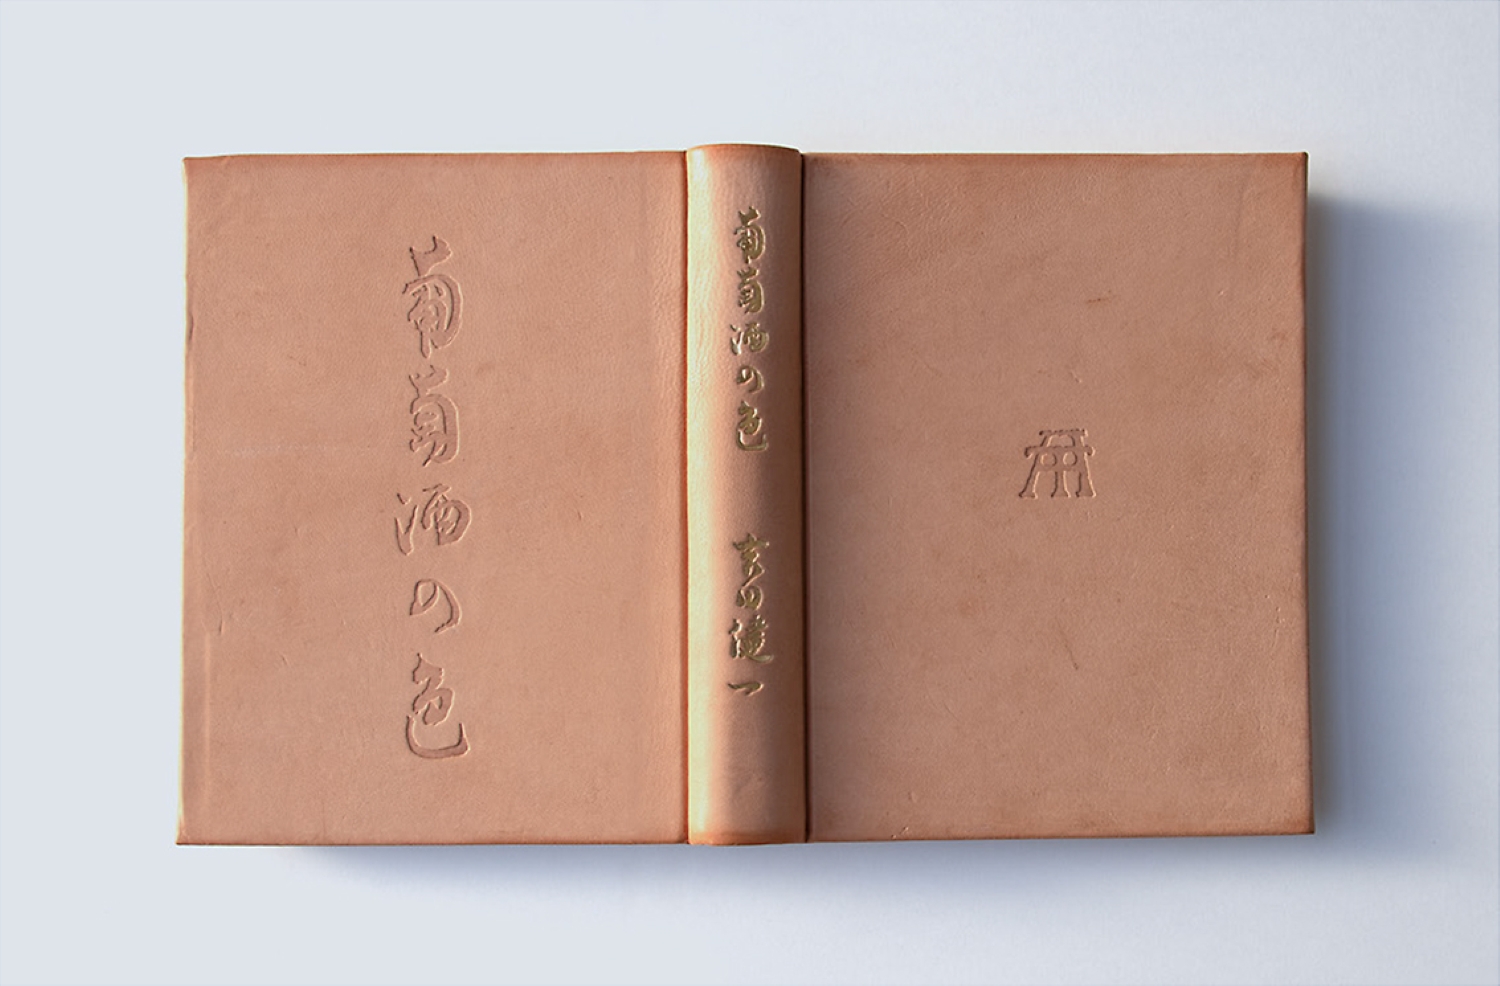 葡萄酒の色
葡萄酒の色 吉田健一